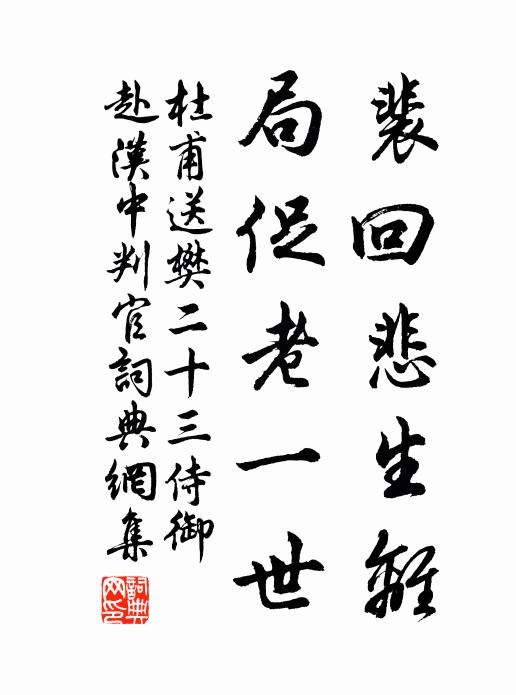 裴回悲生離
局促老一世
杜甫送樊二十三侍御
赴漢中判官詞典網集
詞典
网印